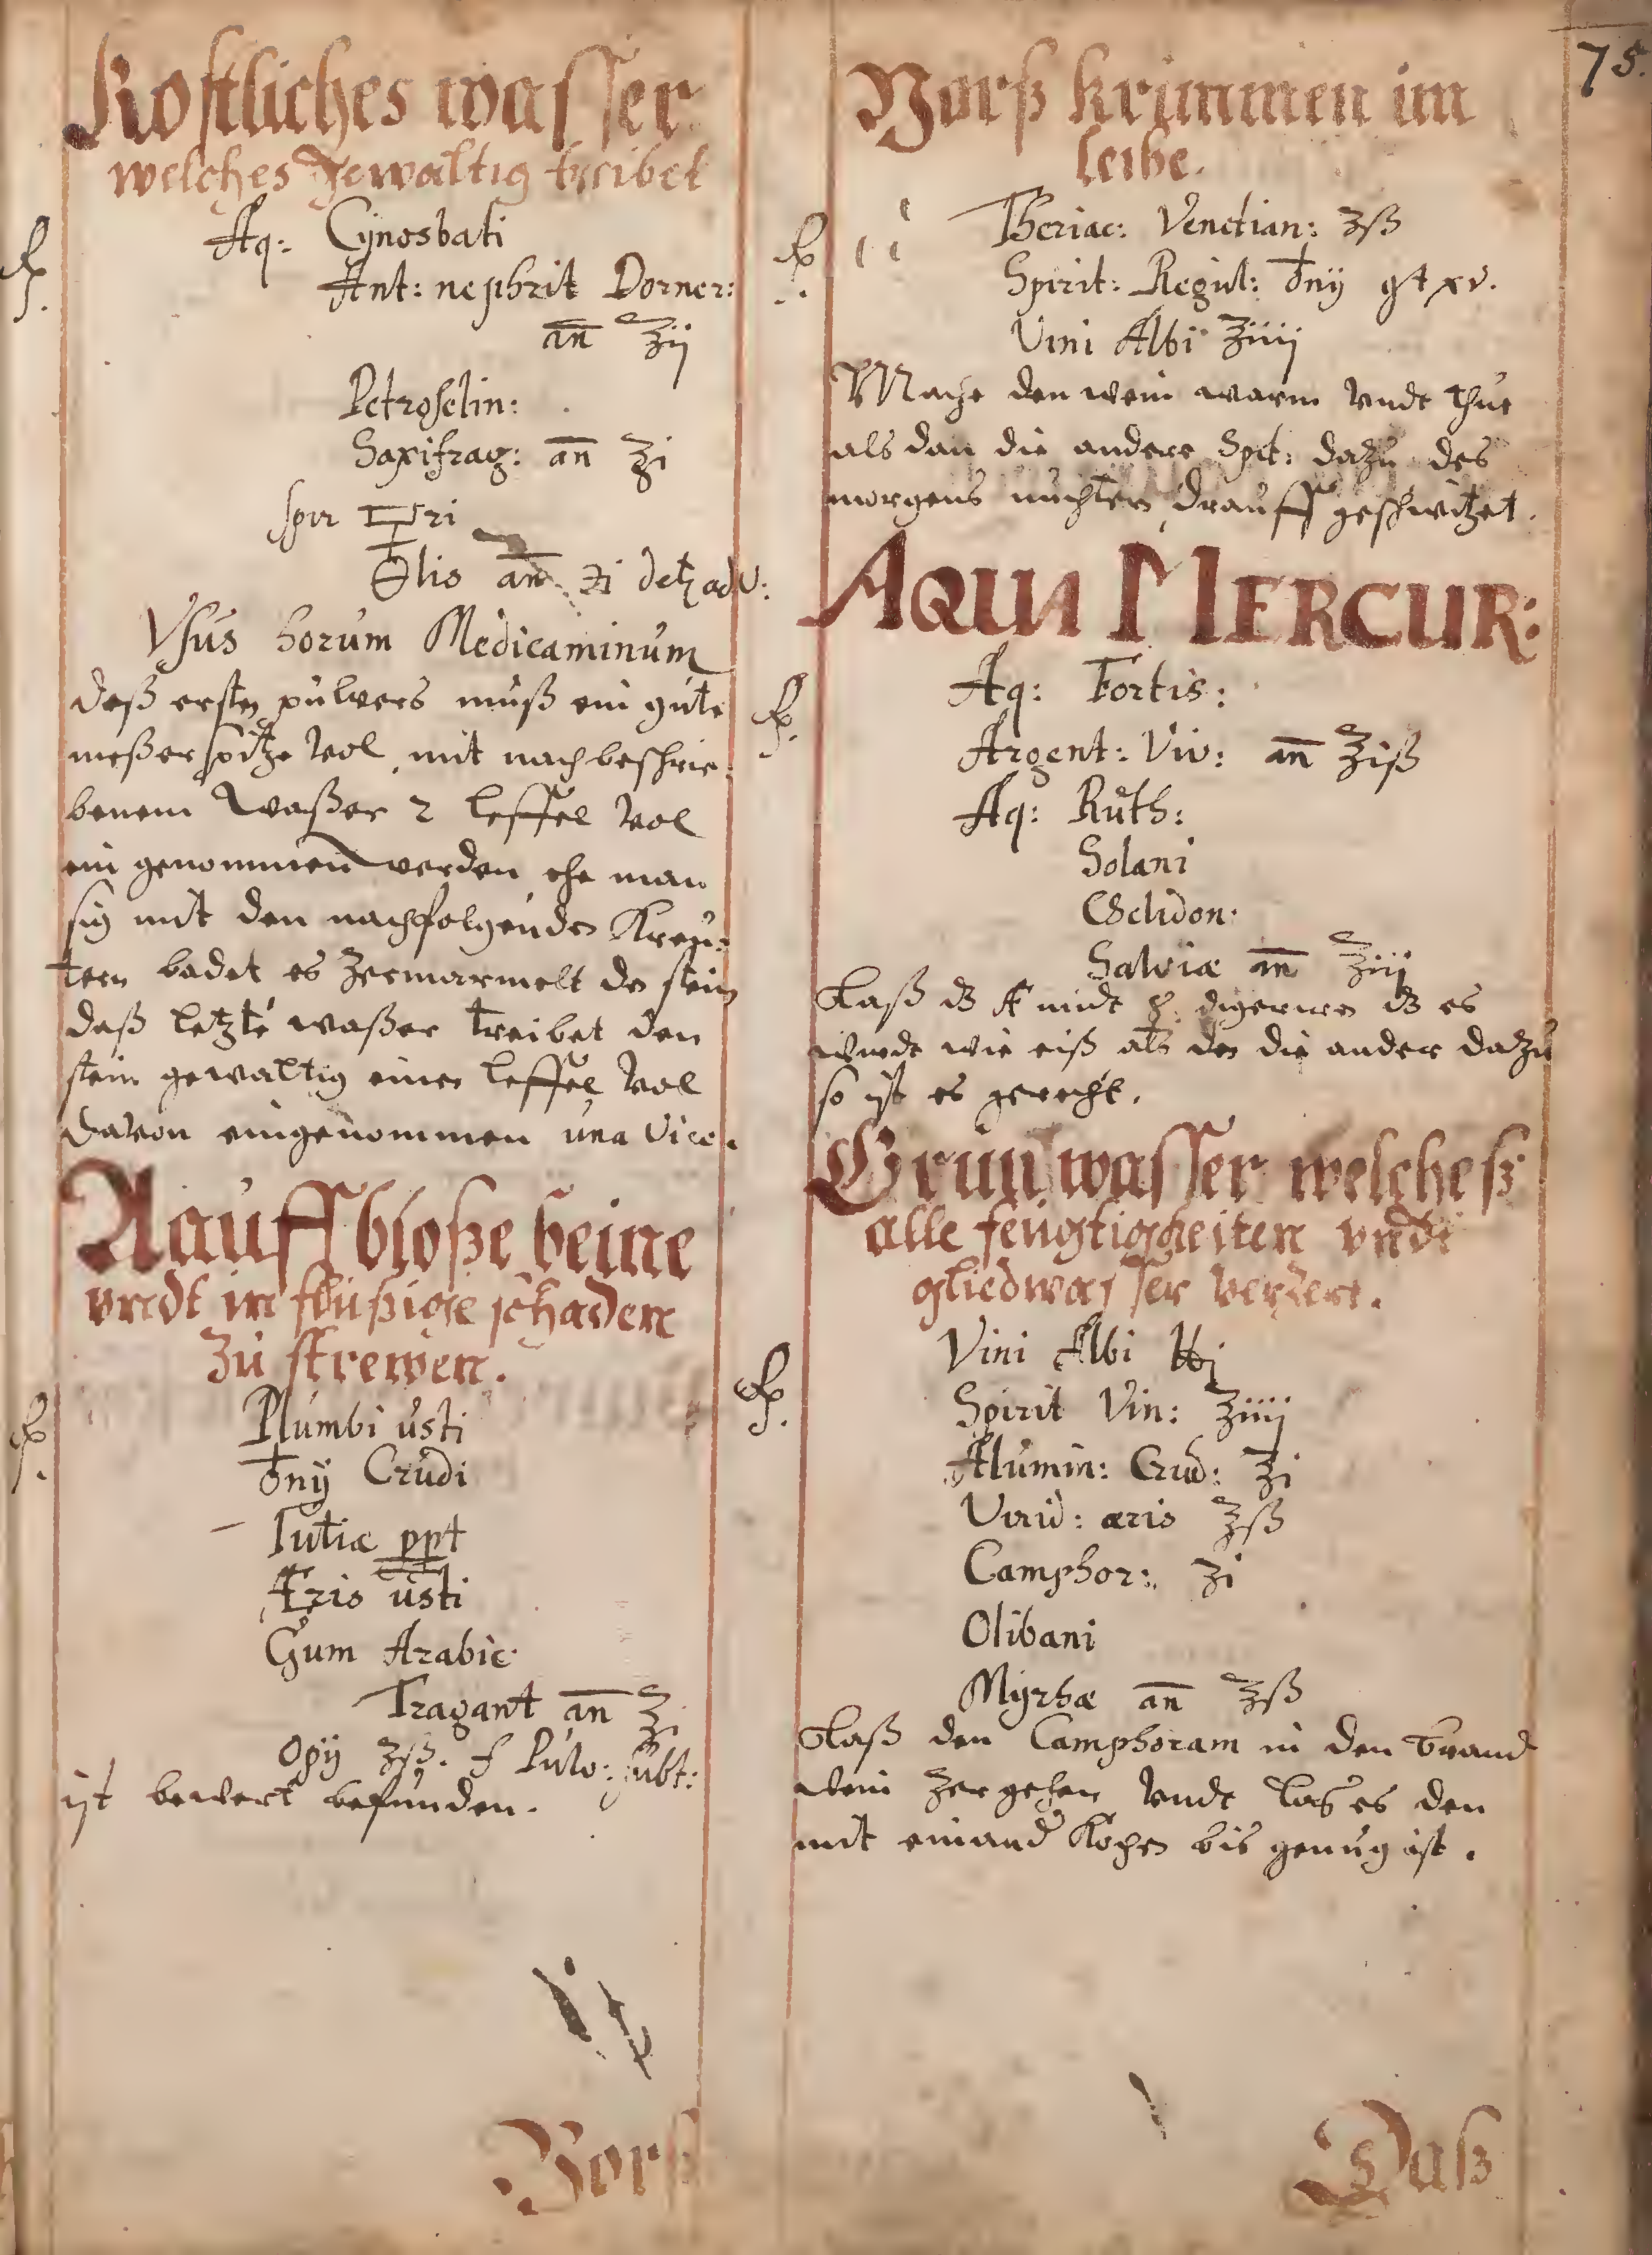 75.
Kostliches wasser
welches gewaltig treibet
Aq: Cynosbati
Ant: nephrit Dorner:
an̅ ʒij
Petroselin:
Saxifrag: an̅ ʒi
spir 🜿ri
lis an̅ ʒi
Vsus horum Medicaminum
deß ersten pulvers muß ein gute
meßerspitze vol mit nachbeschrie:
benem waßer 2 leffel vol
ein genommen werden ehe man
sich mit den nachfolgenden Kreu:
tern badet es zermarmelt den stein
daß letzte waßer treibet den
stein gewaltig einen leffel vol
davon eingenommen una vice.
Aauff bloße beine
vndt in flüßige schaden
zu strewen.
Plumbi usti
♁nij Crudi
Tutiæ ppt
Æris usti
Gum Arabic:
Tragant an̅ ʒ
Opij ʒß. f Pulv: subt:
ist bewert befunden.
Vorß
Vorß krimmen im
leibe.
Theriac: Venetian: ʒß
Spirit: Regul: ♁nij gt xv.
Vini Albi ℥iiij
Mache den wein warm vndt thue
als dan die andere Spit: dazu des
morgens nuchtern drauff geschwitzet.
AQUA MERCUR:
Aq: Fortis:
Argent: Viv: an̅ ℥iß
Aq: Ruth:
Solani
Chelidon:
Salviæ an̅ ℥iij
Laß dz mit digeriren dz es
wirdt wie eiß als den die ander dazu
so ist es gerecht.
Grun wasser welcheß
alle feugtigkeiten vndt
gliedwasser verzert.
Vini Albi ℔j
Spirit Vin: ℥iiij
Alumin: Crud: ℥i
Virid: æris ℥ß
Camphor: ʒi
Olibani
Myrhæ an̅ ℥ß
Laß den Camphoram in den brand
wein zergehen vndt las es den
mit einand Kochen bis genug ist.
Daß